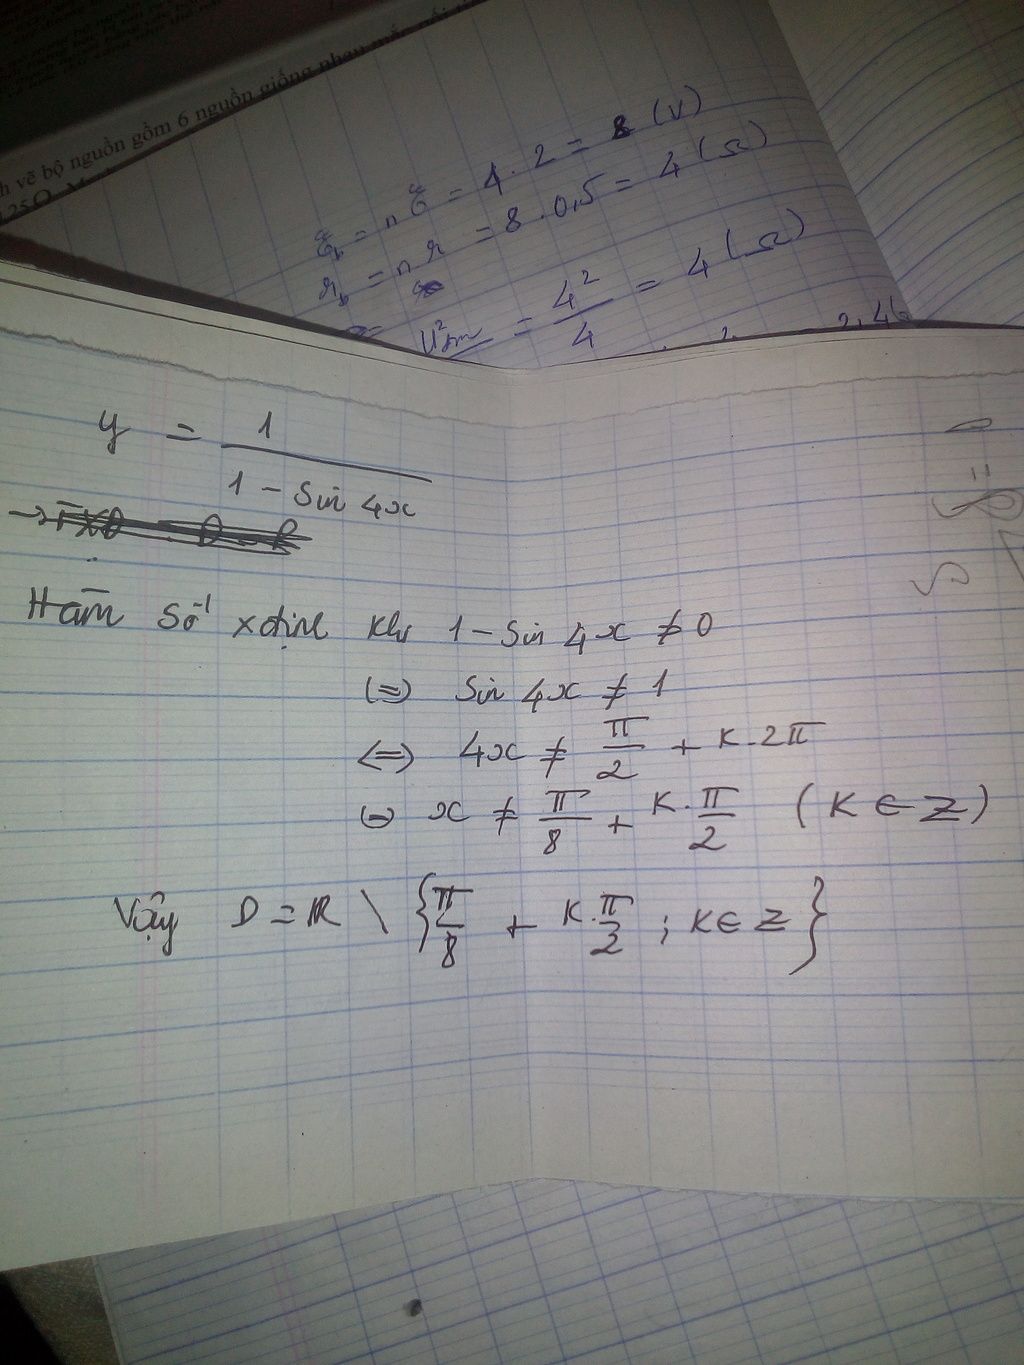 h vẽ bộ nguồn gồm 6 nguồn giống nhau mắc nối
ℰb = nℰ = 4 . 2 = 8 (V)
rb = n r = 8 . 0,5 = 4 (Ω)
U²đm / = 4²/4 = 4 (Ω)
y = 1/(1 - sin 4x)
Hàm số xđịnh khi 1 - sin 4x ≠ 0
(=) sin 4x ≠ 1
<=> 4x ≠ π/2 + K.2π
(=) x ≠ π/8 + K.π/2 (K ∈ Z)
Vậy D = ℝ \ {π/8 + K.π/2 ; K ∈ Z}